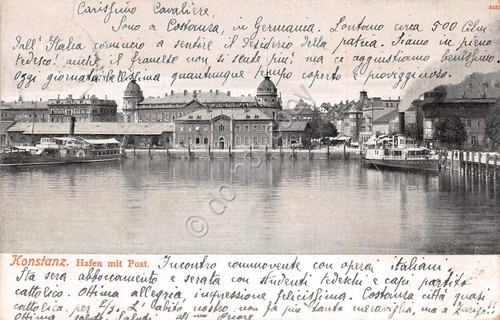 Carissimo Cavaliere,
Sono a Costanza, in Germania. Lontano circa 500 Cilm.
dall'Italia comincio a sentire il desiderio della patria. Siamo in pieno
tedesco! anche il francese non si sente più, ma ci aggiustiamo benissimo.
Oggi giornata bellissima quantunque tempo coperto e piovigginoso.
Konstanz. Hafen mit Post.
Incontro commovente con operai italiani.
Sta sera abboccamento e serata con studenti tedeschi e capi partito
cattolico. Ottima allegria, impressione felicissima. Costanza città quasi
cattolica, per 2/3. L'abito nostro non fa più tanta meraviglia, ma a Zurigo!
Ottima salute. Saluti